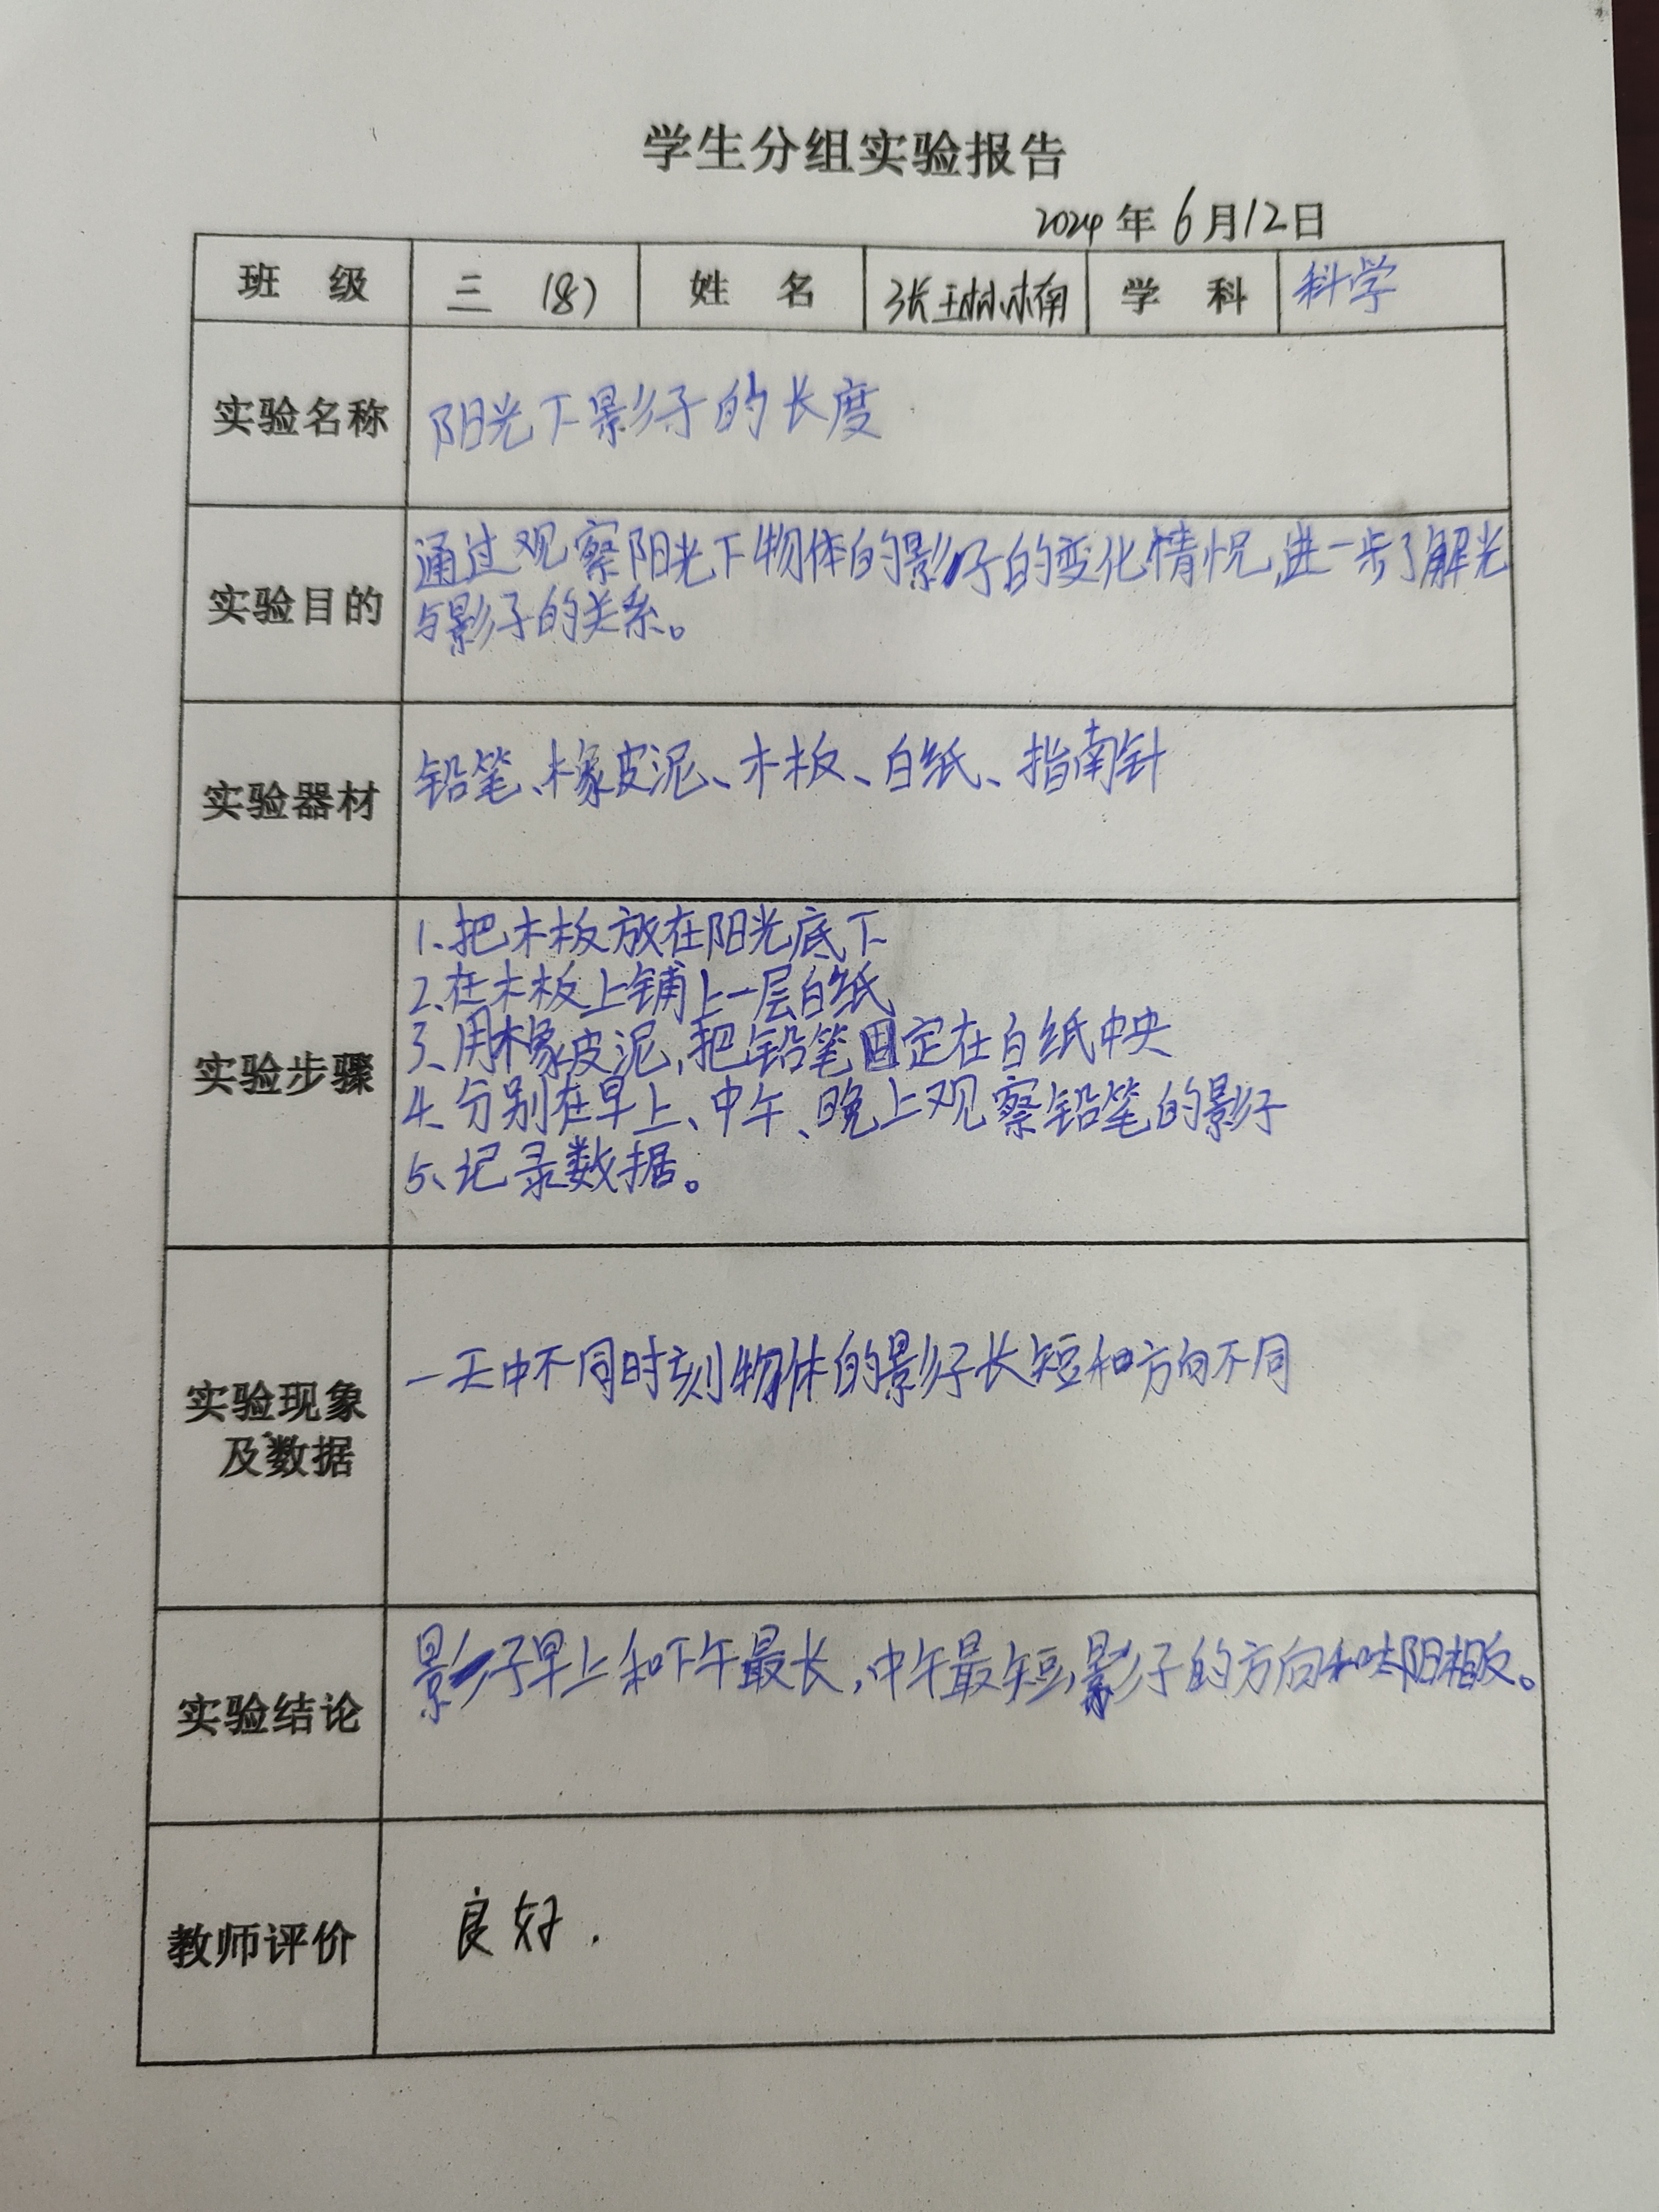 学生分组实验报告
2024年6月12日
班 级 三 (8) 姓 名 张 学 科 科学
实验名称 阳光下影子的长度
实验目的 通过观察阳光下物体的影子的变化情况,进一步了解光
与影子的关系。
实验器材 铅笔、橡皮泥、木板、白纸、指南针
实验步骤
1、把木板放在阳光底下
2、在木板上铺上一层白纸
3、用橡皮泥,把铅笔固定在白纸中央
4、分别在早上、中午、晚上观察铅笔的影子
5、记录数据。
实验现象
及数据
一天中不同时刻物体的影子长短和方向不同
实验结论 影子早上和下午最长,中午最短,影子的方向和太阳相反。
教师评价 良好.